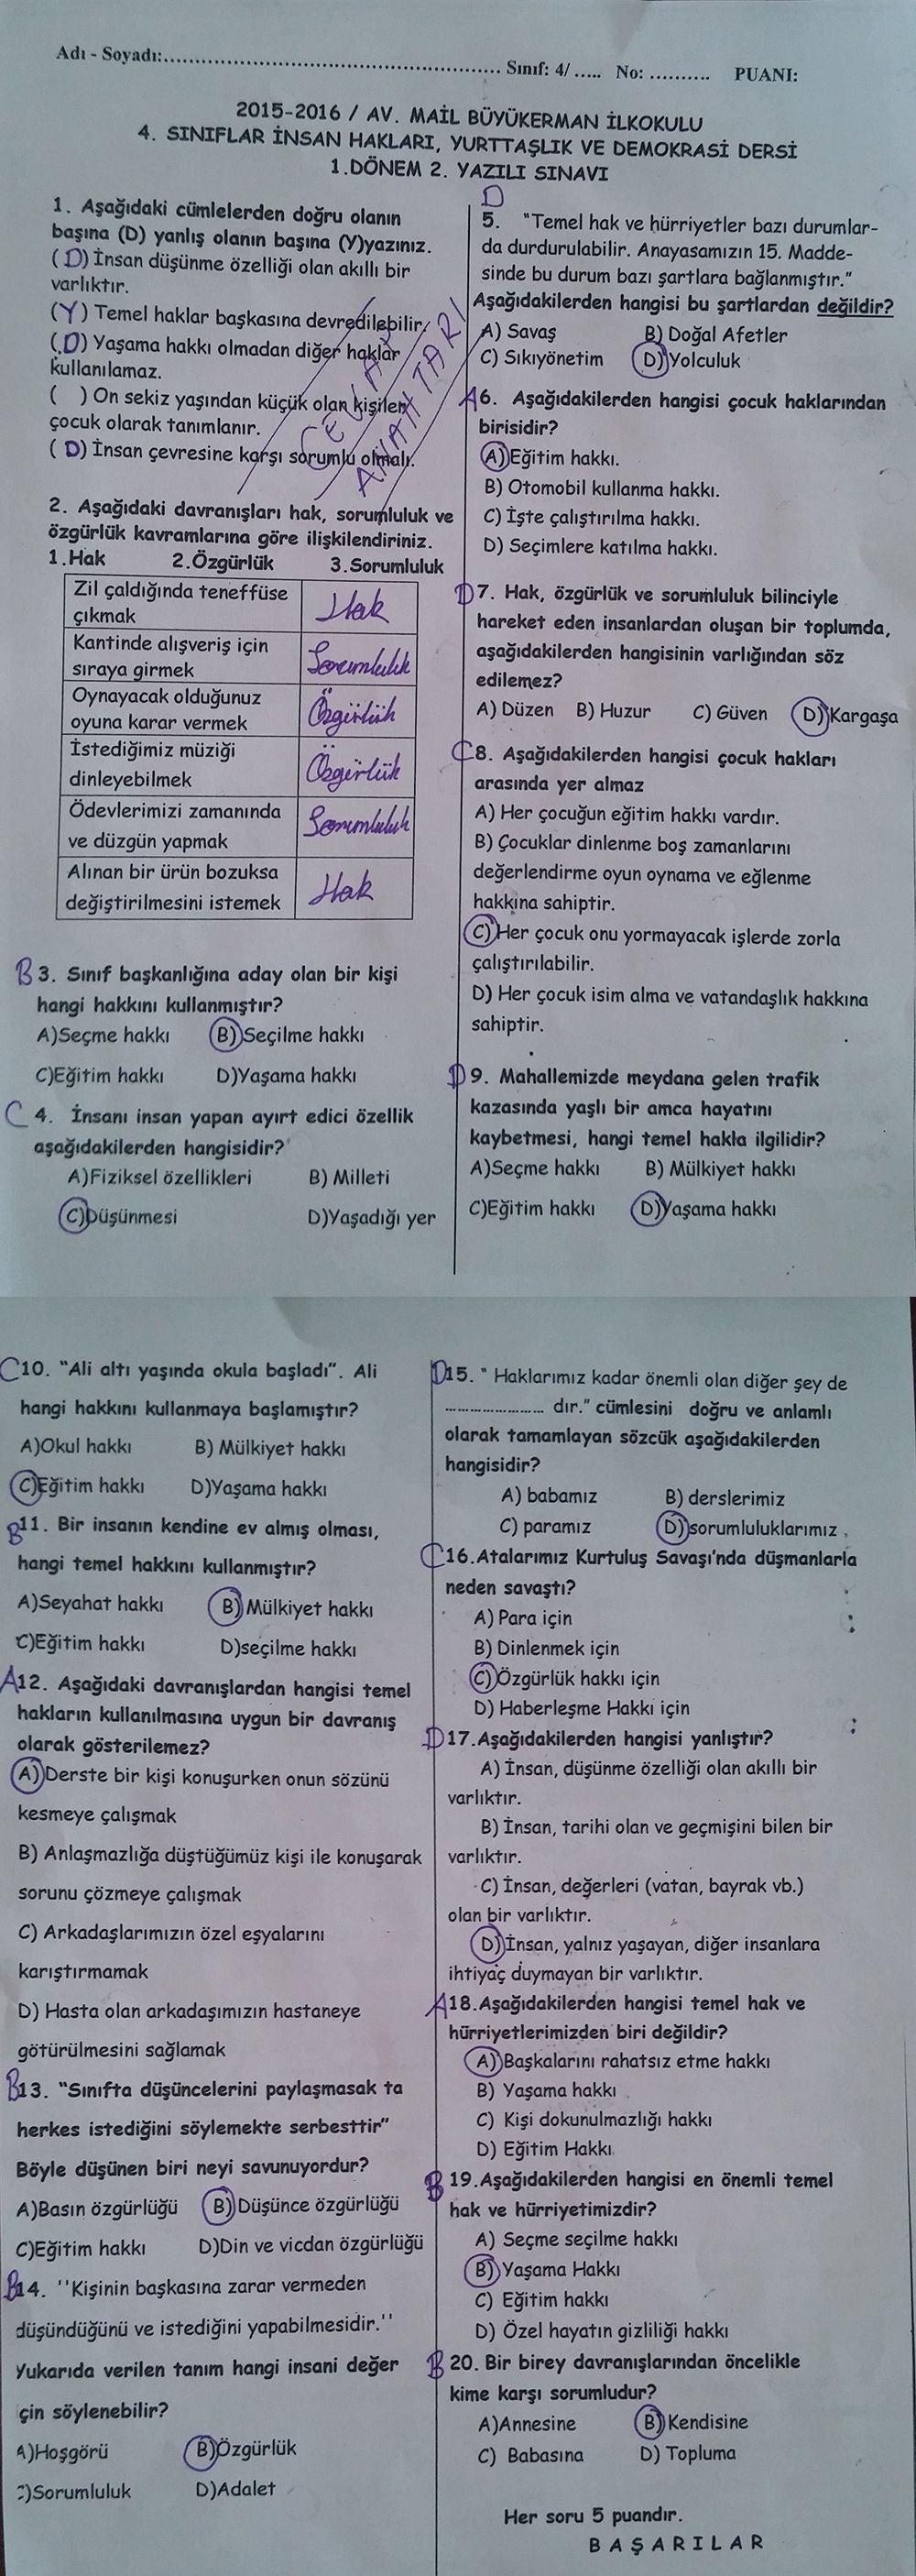 Adı - Soyadı:.......................................................... Sınıf: 4/ ..... No: .......... PUANI:
2015-2016 / AV. MAİL BÜYÜKERMAN İLKOKULU
4. SINIFLAR İNSAN HAKLARI, YURTTAŞLIK VE DEMOKRASİ DERSİ
1.DÖNEM 2. YAZILI SINAVI
1. Aşağıdaki cümlelerden doğru olanın
başına (D) yanlış olanın başına (Y)yazınız.
(D) İnsan düşünme özelliği olan akıllı bir
varlıktır.
(Y) Temel haklar başkasına devredilebilir.
(D) Yaşama hakkı olmadan diğer haklar
kullanılamaz.
( ) On sekiz yaşından küçük olan kişiler
çocuk olarak tanımlanır.
(D) İnsan çevresine karşı sorumlu olmalı.
CEVAP
ANAHTARI
2. Aşağıdaki davranışları hak, sorumluluk ve
özgürlük kavramlarına göre ilişkilendiriniz.
1.Hak 2.Özgürlük 3.Sorumluluk
Zil çaldığında teneffüse
çıkmak Hak
Kantinde alışveriş için
sıraya girmek Sorumluluk
Oynayacak olduğunuz
oyuna karar vermek Özgürlük
İstediğimiz müziği
dinleyebilmek Özgürlük
Ödevlerimizi zamanında
ve düzgün yapmak Sorumluluk
Alınan bir ürün bozuksa
değiştirilmesini istemek Hak
B 3. Sınıf başkanlığına aday olan bir kişi
hangi hakkını kullanmıştır?
A)Seçme hakkı B)Seçilme hakkı
C)Eğitim hakkı D)Yaşama hakkı
C 4. İnsanı insan yapan ayırt edici özellik
aşağıdakilerden hangisidir?
A)Fiziksel özellikleri B) Milleti
C)Düşünmesi D)Yaşadığı yer
D
5. “Temel hak ve hürriyetler bazı durumlar-
da durdurulabilir. Anayasamızın 15. Madde-
sinde bu durum bazı şartlara bağlanmıştır.”
Aşağıdakilerden hangisi bu şartlardan değildir?
A) Savaş B) Doğal Afetler
C) Sıkıyönetim D)Yolculuk
A 6. Aşağıdakilerden hangisi çocuk haklarından
birisidir?
A)Eğitim hakkı.
B) Otomobil kullanma hakkı.
C) İşte çalıştırılma hakkı.
D) Seçimlere katılma hakkı.
D 7. Hak, özgürlük ve sorumluluk bilinciyle
hareket eden insanlardan oluşan bir toplumda,
aşağıdakilerden hangisinin varlığından söz
edilemez?
A) Düzen B) Huzur C) Güven D)Kargaşa
C 8. Aşağıdakilerden hangisi çocuk hakları
arasında yer almaz
A) Her çocuğun eğitim hakkı vardır.
B) Çocuklar dinlenme boş zamanlarını
değerlendirme oyun oynama ve eğlenme
hakkına sahiptir.
C) Her çocuk onu yormayacak işlerde zorla
çalıştırılabilir.
D) Her çocuk isim alma ve vatandaşlık hakkına
sahiptir.
D 9. Mahallemizde meydana gelen trafik
kazasında yaşlı bir amca hayatını
kaybetmesi, hangi temel hakla ilgilidir?
A)Seçme hakkı B) Mülkiyet hakkı
C)Eğitim hakkı D)Yaşama hakkı
C 10. “Ali altı yaşında okula başladı”. Ali
hangi hakkını kullanmaya başlamıştır?
A)Okul hakkı B) Mülkiyet hakkı
C)Eğitim hakkı D)Yaşama hakkı
B 11. Bir insanın kendine ev almış olması,
hangi temel hakkını kullanmıştır?
A)Seyahat hakkı B) Mülkiyet hakkı
C)Eğitim hakkı D)seçilme hakkı
A 12. Aşağıdaki davranışlardan hangisi temel
hakların kullanılmasına uygun bir davranış
olarak gösterilemez?
A)Derste bir kişi konuşurken onun sözünü
kesmeye çalışmak
B) Anlaşmazlığa düştüğümüz kişi ile konuşarak
sorunu çözmeye çalışmak
C) Arkadaşlarımızın özel eşyalarını
karıştırmamak
D) Hasta olan arkadaşımızın hastaneye
götürülmesini sağlamak
B 13. “Sınıfta düşüncelerini paylaşmasak ta
herkes istediğini söylemekte serbesttir”
Böyle düşünen biri neyi savunuyordur?
A)Basın özgürlüğü B)Düşünce özgürlüğü
C)Eğitim hakkı D)Din ve vicdan özgürlüğü
B 14. ''Kişinin başkasına zarar vermeden
düşündüğünü ve istediğini yapabilmesidir.''
Yukarıda verilen tanım hangi insani değer
çin söylenebilir?
A)Hoşgörü B)Özgürlük
C)Sorumluluk D)Adalet
D 15. “ Haklarımız kadar önemli olan diğer şey de
........................ dır.” cümlesini doğru ve anlamlı
olarak tamamlayan sözcük aşağıdakilerden
hangisidir?
A) babamız B) derslerimiz
C) paramız D)sorumluluklarımız .
C 16.Atalarımız Kurtuluş Savaşı’nda düşmanlarla
neden savaştı?
A) Para için
B) Dinlenmek için
C)Özgürlük hakkı için
D) Haberleşme Hakkı için
D 17.Aşağıdakilerden hangisi yanlıştır?
A) İnsan, düşünme özelliği olan akıllı bir
varlıktır.
B) İnsan, tarihi olan ve geçmişini bilen bir
varlıktır.
C) İnsan, değerleri (vatan, bayrak vb.)
olan bir varlıktır.
D)İnsan, yalnız yaşayan, diğer insanlara
ihtiyaç duymayan bir varlıktır.
A 18.Aşağıdakilerden hangisi temel hak ve
hürriyetlerimizden biri değildir?
A)Başkalarını rahatsız etme hakkı
B) Yaşama hakkı
C) Kişi dokunulmazlığı hakkı
D) Eğitim Hakkı
B 19.Aşağıdakilerden hangisi en önemli temel
hak ve hürriyetimizdir?
A) Seçme seçilme hakkı
B)Yaşama Hakkı
C) Eğitim hakkı
D) Özel hayatın gizliliği hakkı
B 20. Bir birey davranışlarından öncelikle
kime karşı sorumludur?
A)Annesine B)Kendisine
C) Babasına D) Topluma
Her soru 5 puandır.
B A Ş A R I L A R